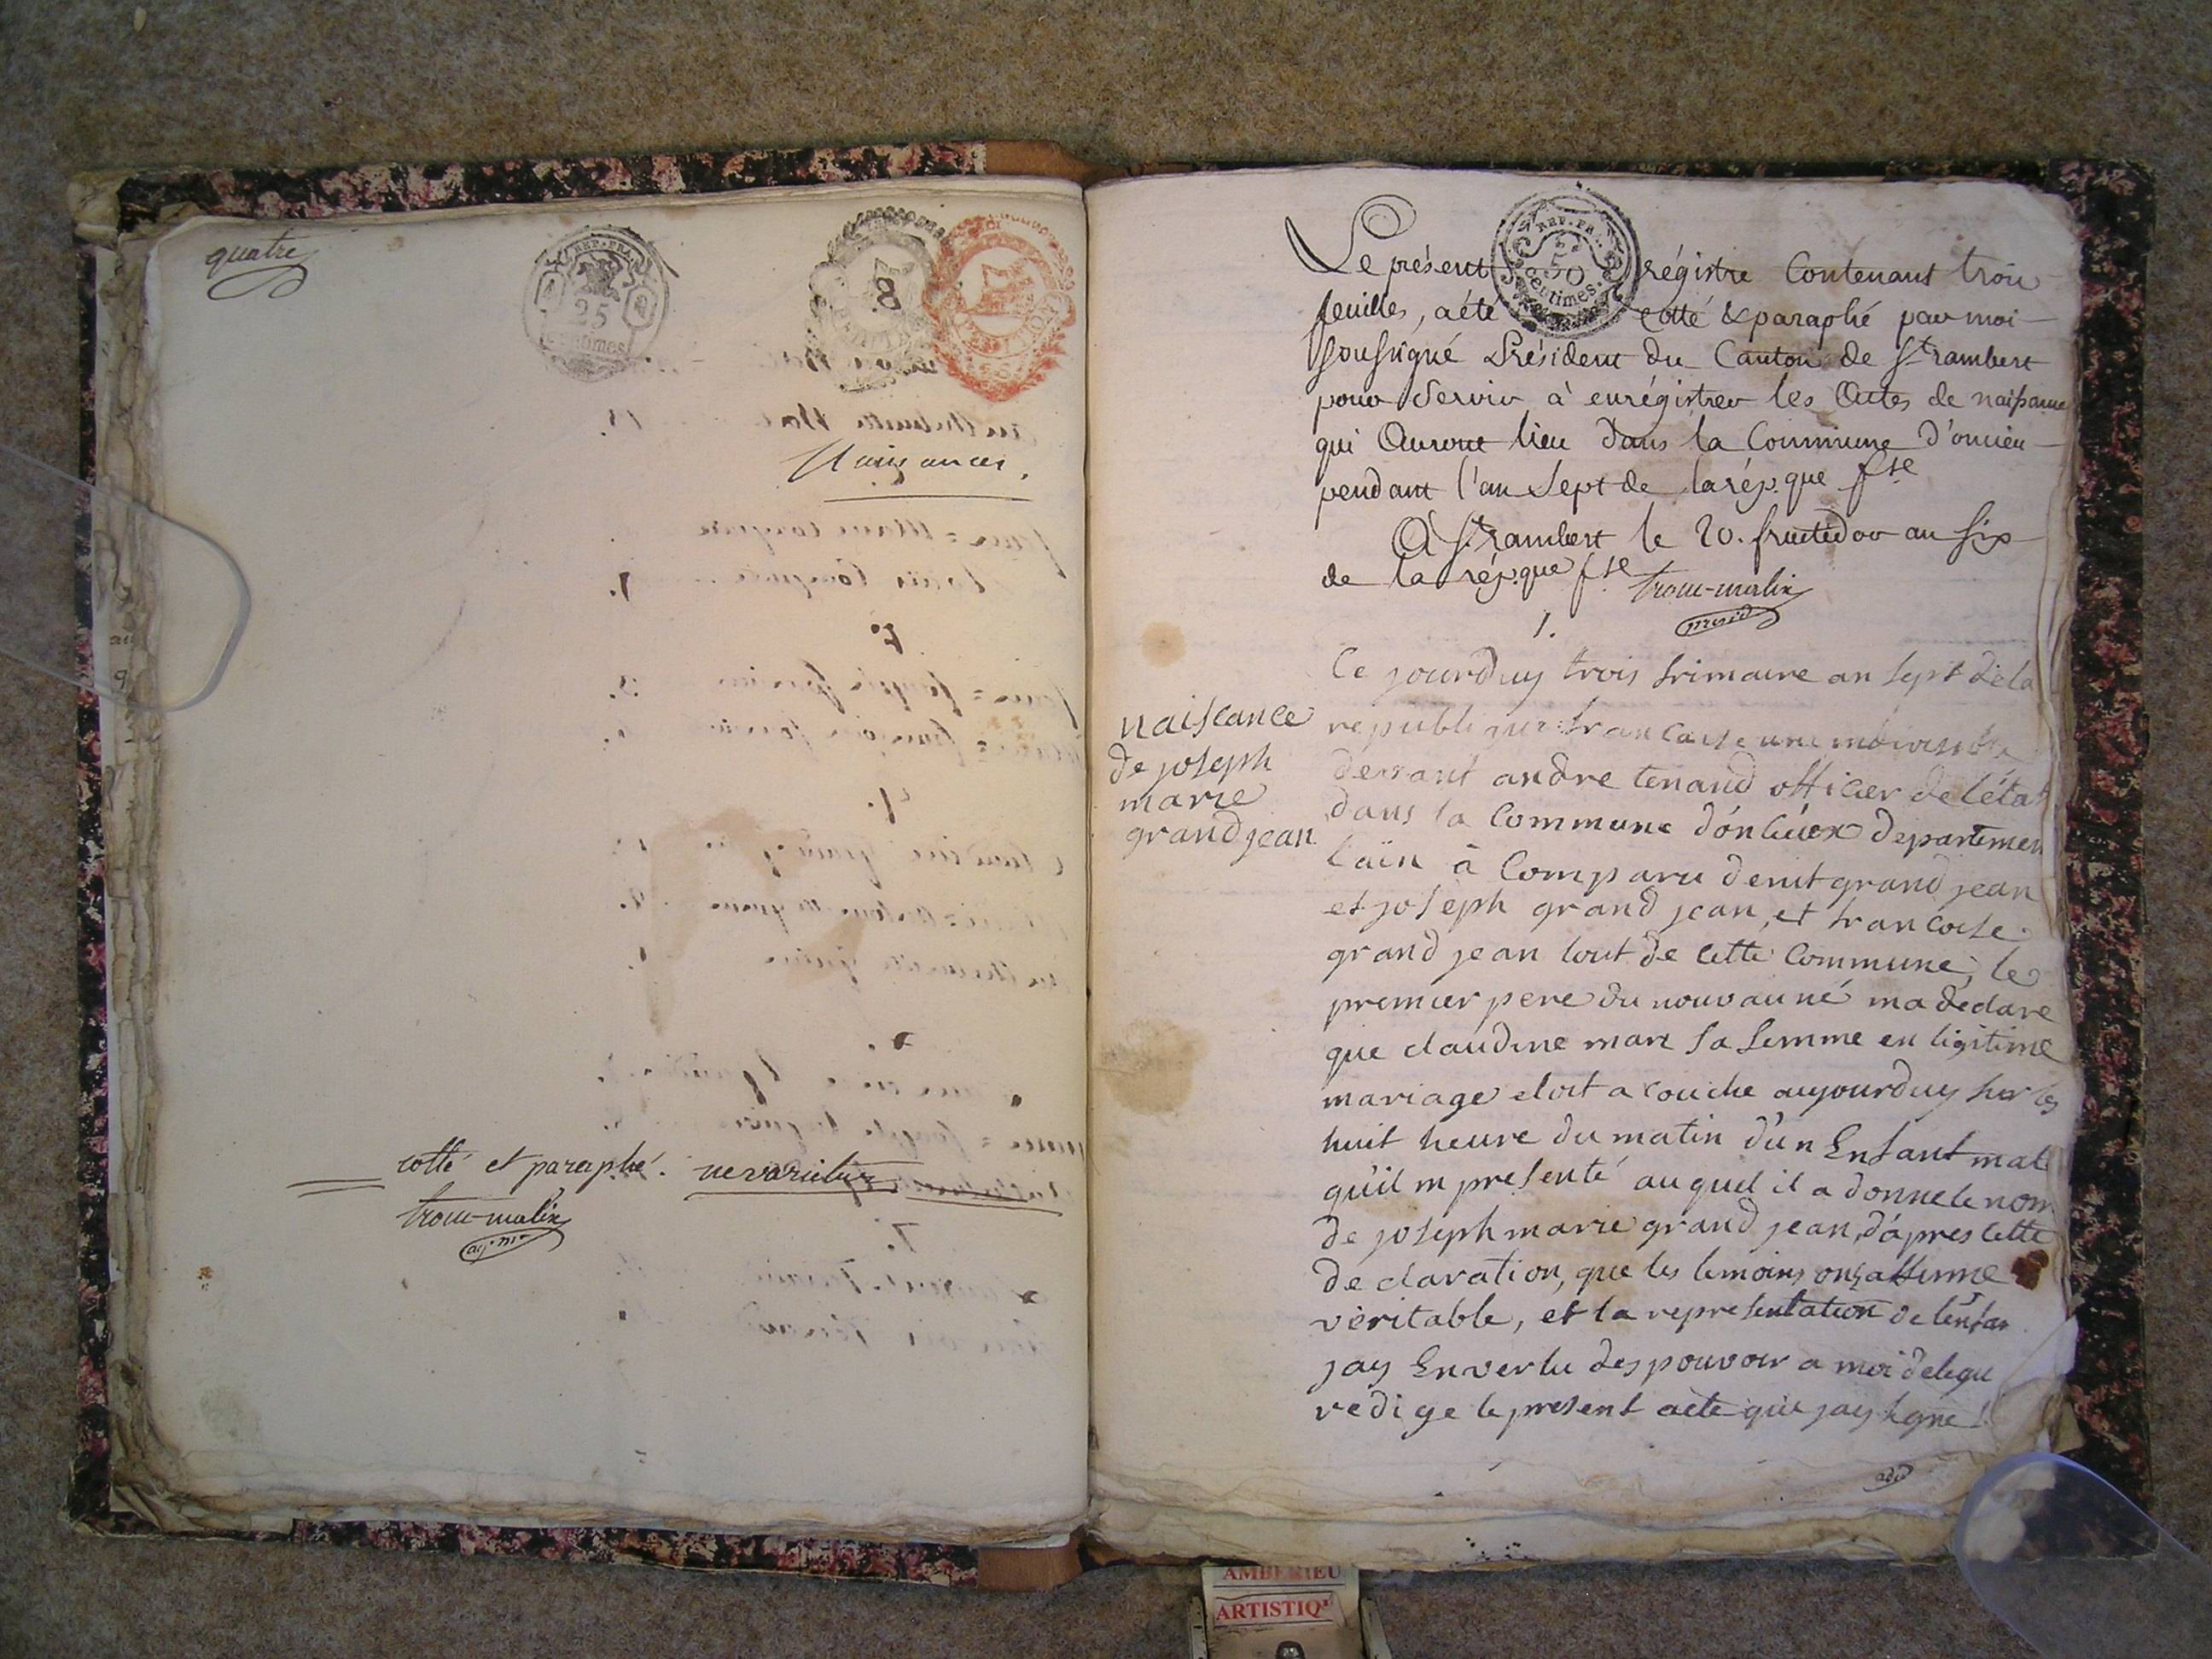 quatre
REP. FRA.
25
centimes
8
Naissances.
cotté et paraphé. ne varietur
trocu-malix
ag. m.
REP. FRA.
50
centimes.
Le présent régistre Contenant trois
feuilles, a été cotté & paraphé par moi
soussigné Président du Canton de St rambert
pour Servir à enrégistrer les Actes de naissance
qui Auront lieu dans la Commune d'oncieu
pendant l'an Sept de la rép.que fse
A St rambert le 20. fructidor an Six
de la rép.que fse
1.
naiscance
de joseph
marie
grand jean
Ce jourduy trois frimaire an sept de la
republique francaise une indivisible
devant andre tenand officier de létat
dans la Commune dónciéux departemen
laïn à Comparu denit grand jean
et joseph grand jean, et francoise
grand jean tout de cette Commune, le
premier pere du nouvau né ma declare
que claudine mare sa femme en ligitime
mariage etoit acouche aujourduy sur les
huit heure du matin dún Enfant mal
quíl m presenté au quel il a donne le nom
de joseph marie grand jean, dápres cette
declaration, que les temoins ont affirme
véritable, et la representation de lenfan
jay En vertu des pouvoir a moi delegu
redige le present acte que jay signe
AMBERIEU
ARTISTIQ